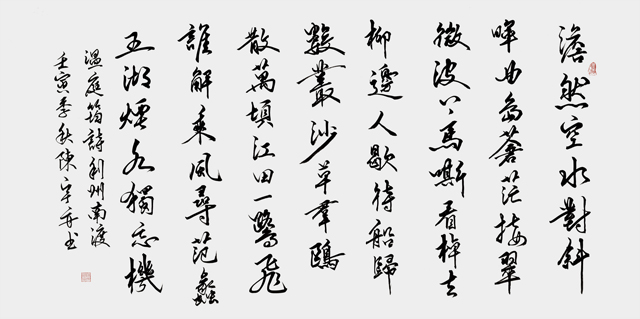 澹然空水對斜
暉曲島蒼茫接翠
微波上馬嘶看棹去
柳邊人歇待船歸
數叢沙草羣鷗
散萬頃江田一鷺飛
誰解乘風尋范蠡
五湖煙水獨忘機
溫庭筠詩利州南渡
壬寅季秋陳宇书